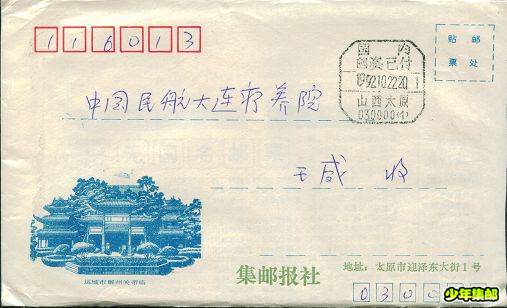 116013
国内
邮资已付
1992.10.22.20
山西太原
030000(1)
贴 邮
票 处
中国民航大连疗养院
王咸 收
运城市解州关帝庙
集邮报社
地址:太原市迎泽东大街1号
0300
少年集邮